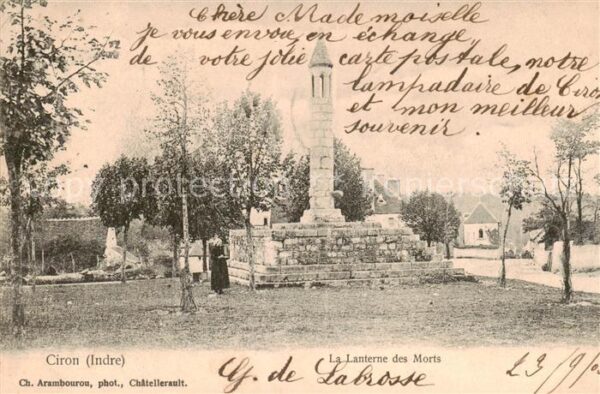 Chère Mademoiselle
Je vous envoie en échange
de votre jolie carte postale, notre
lampadaire de Ciron
et mon meilleur
souvenir.
Ciron (Indre)
La Lanterne des Morts
Ch. Arambourou, phot., Châtellerault.
G. de Labrosse
23/9/0